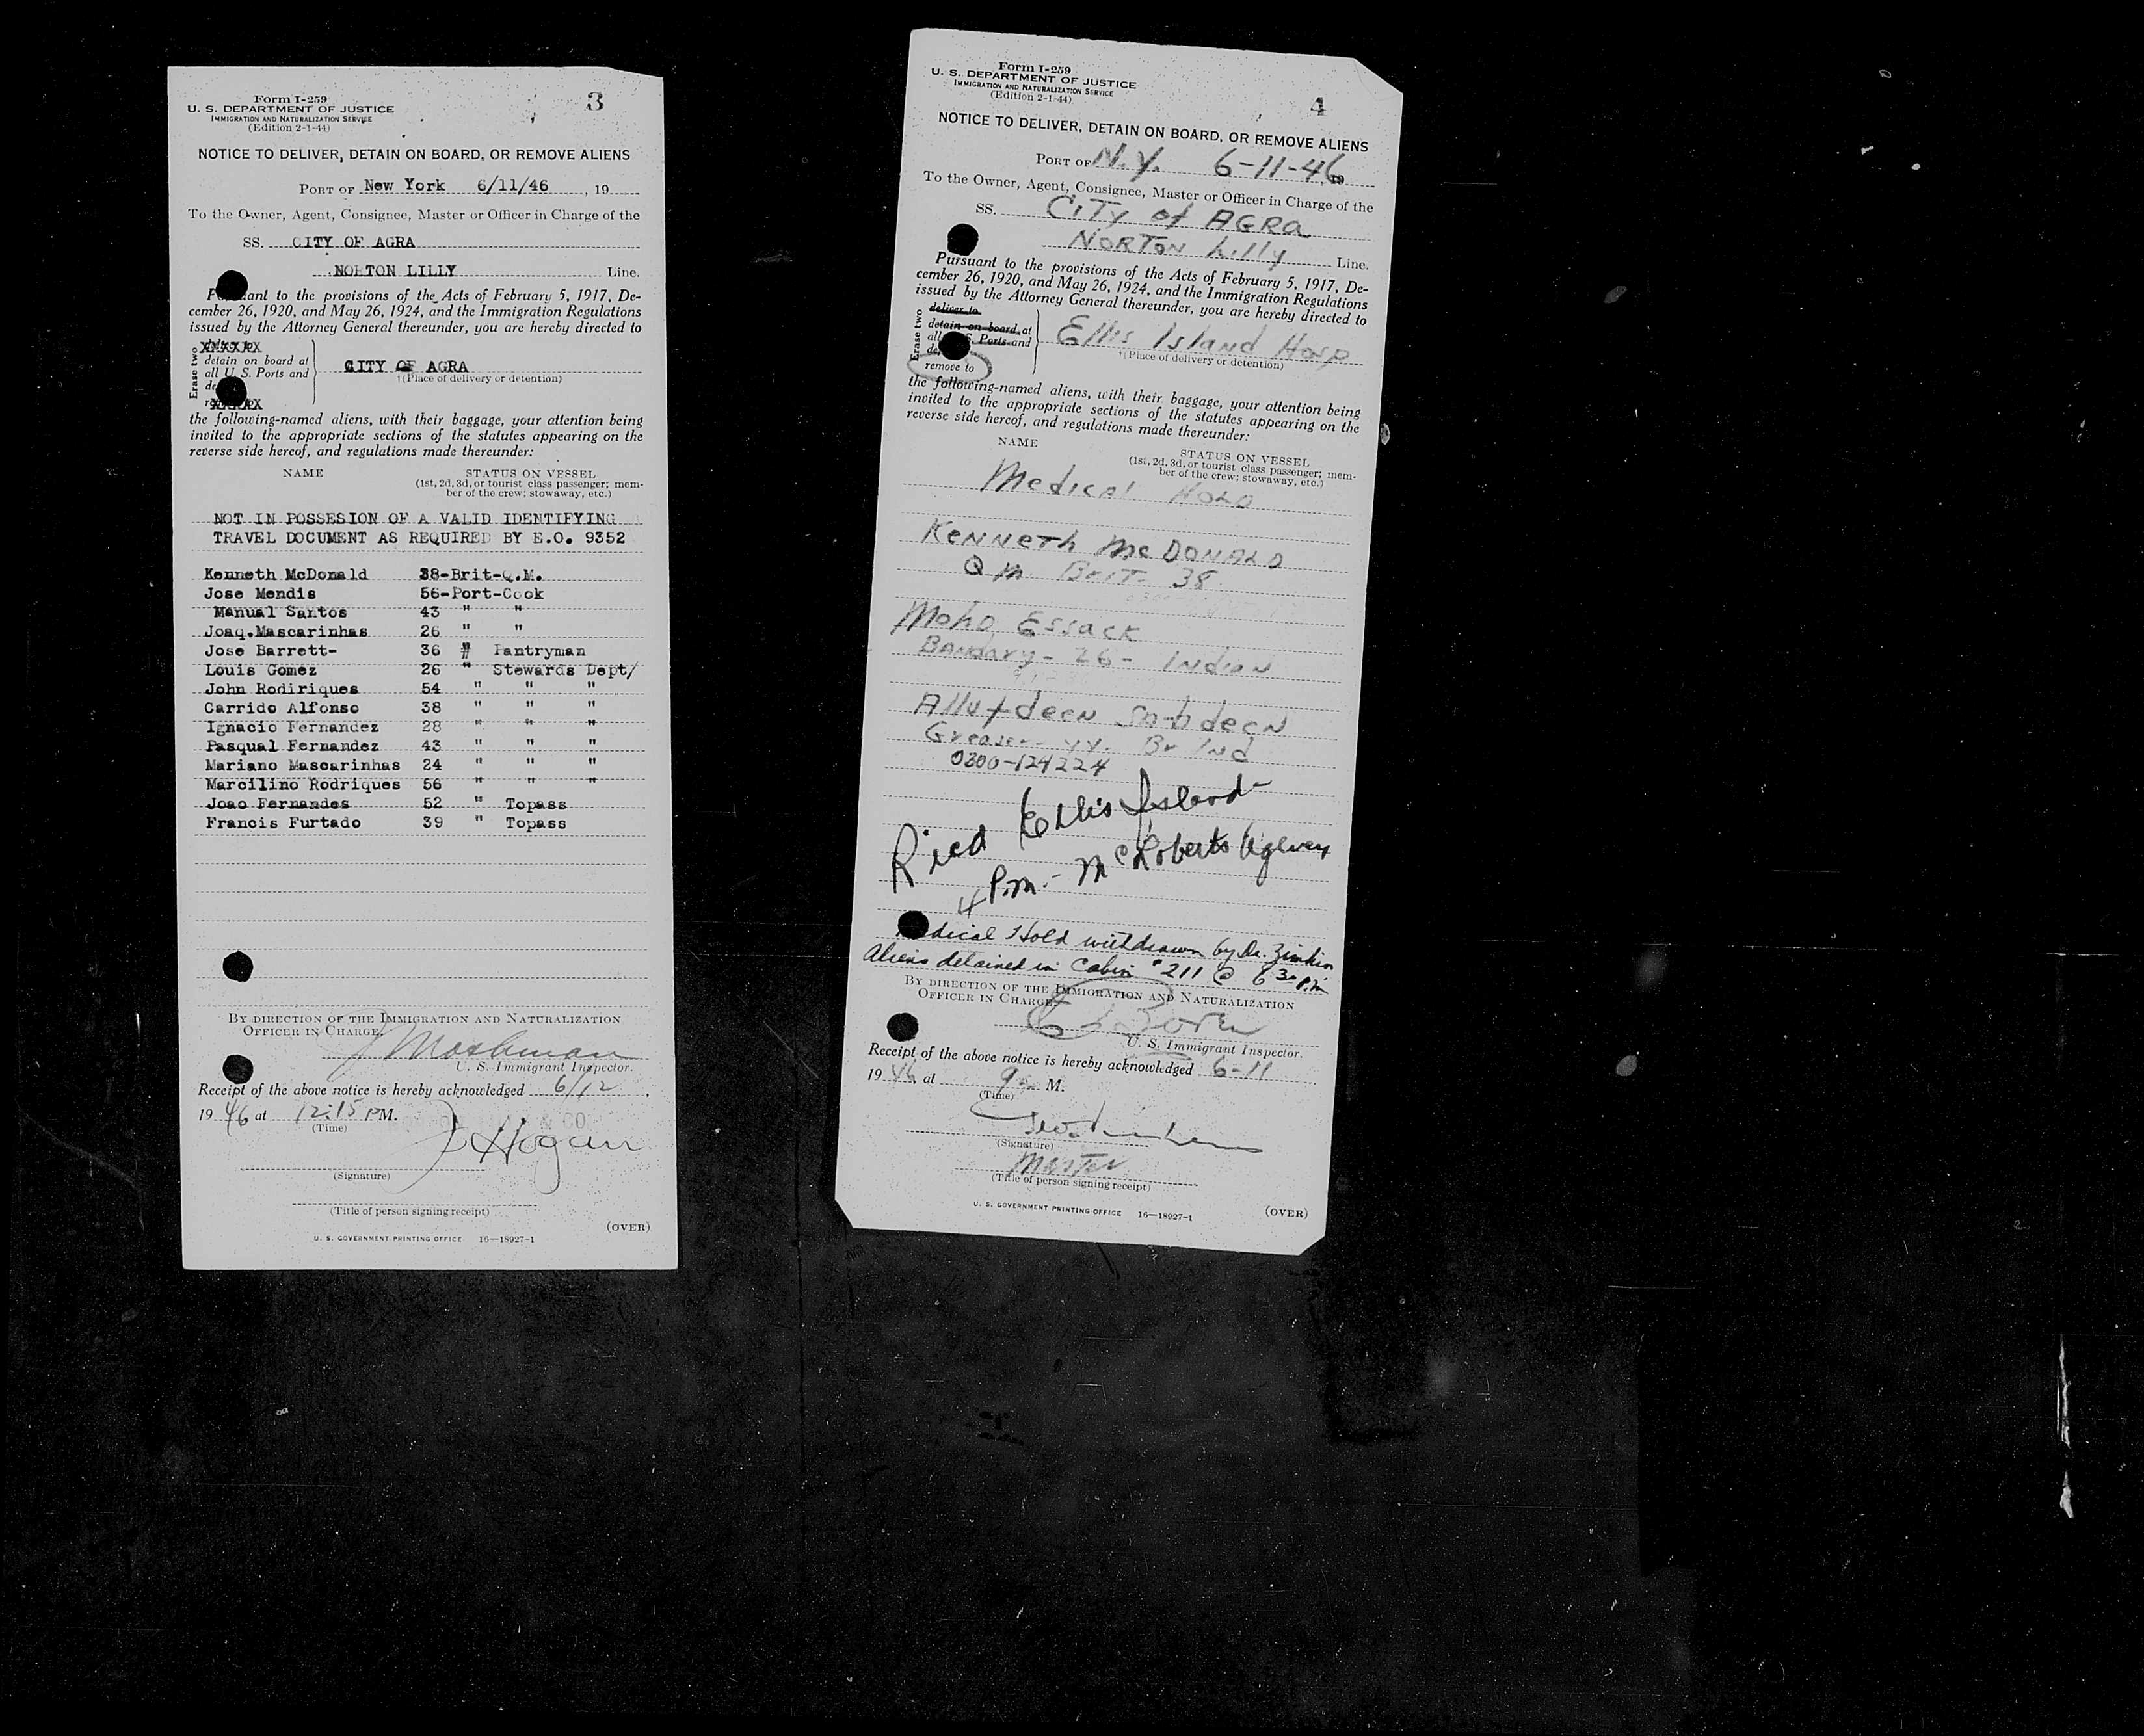 Form I-259
U. S. DEPARTMENT OF JUSTICE
IMMIGRATION AND NATURALIZATION SERVICE
(Edition 2-1-44)
3
NOTICE TO DELIVER, DETAIN ON BOARD, OR REMOVE ALIENS
PORT OF New York 6/11/46, 19
To the Owner, Agent, Consignee, Master or Officer in Charge of the
SS. CITY OF AGRA
NORTON LILLY Line.
Pursuant to the provisions of the Acts of February 5, 1917, De-
cember 26, 1920, and May 26, 1924, and the Immigration Regulations
issued by the Attorney General thereunder, you are hereby directed to
Erase two
XXXXXX
detain on board at
all U. S. Ports and
CITY OF AGRA
†(Place of delivery or detention)
the following-named aliens, with their baggage, your attention being
invited to the appropriate sections of the statutes appearing on the
reverse side hereof, and regulations made thereunder:
NAME
STATUS ON VESSEL
(1st, 2d, 3d, or tourist class passenger; mem-
ber of the crew; stowaway, etc.)
NOT IN POSSESION OF A VALID IDENTIFYING
TRAVEL DOCUMENT AS REQUIRED BY E.O. 9352
Kenneth McDonald 38-Brit-Q.M.
Jose Mendis 56-Port-Cook
Manual Santos 43 " "
Joaq.Mascarinhas 26 " "
Jose Barrett- 36 " Pantryman
Louis Gomez 26 " Stewards Dept/
John Rodiriques 54 " " "
Carrido Alfonso 38 " " "
Ignacio Fernandez 28 " " "
Pasqual Fernandez 43 " " "
Mariano Mascarinhas 24 " " "
Marcilino Rodriques 56 " " "
Joao Fernandes 52 " Topass
Francis Furtado 39 " Topass
BY DIRECTION OF THE IMMIGRATION AND NATURALIZATION
OFFICER IN CHARGE.
J Moshman
U. S. Immigrant Inspector.
Receipt of the above notice is hereby acknowledged 6/12,
19 46 at 12:15 PM.
(Time)
& CO
J Hogan
(Signature)
(Title of person signing receipt)
(OVER)
U. S. GOVERNMENT PRINTING OFFICE 16—18927-1
Form I-259
U. S. DEPARTMENT OF JUSTICE
IMMIGRATION AND NATURALIZATION SERVICE
(Edition 2-1-44)
4
NOTICE TO DELIVER, DETAIN ON BOARD, OR REMOVE ALIENS
PORT OF N.Y. 6-11-46, 19
To the Owner, Agent, Consignee, Master or Officer in Charge of the
SS. CITY of AGRA
NORTON Lilly Line.
Pursuant to the provisions of the Acts of February 5, 1917, De-
cember 26, 1920, and May 26, 1924, and the Immigration Regulations
issued by the Attorney General thereunder, you are hereby directed to
Erase two
deliver to
detain on board at
all U. S. Ports and
remove to
Ellis Island Hosp
†(Place of delivery or detention)
the following-named aliens, with their baggage, your attention being
invited to the appropriate sections of the statutes appearing on the
reverse side hereof, and regulations made thereunder:
NAME
STATUS ON VESSEL
(1st, 2d, 3d, or tourist class passenger; mem-
ber of the crew; stowaway, etc.)
Medical HOLD
Kenneth McDONALD
QM Brit- 38
Moho Essack
Bandary- 26- Indian
Grease- 44. Br Ind
0300-124224
Ellis Island-
4 P.m.- McRoberts
Medical Hold withdrawn by Dr. Zimkin
Aliens detained in Cabin #211 @ 6 30 P.m
BY DIRECTION OF THE IMMIGRATION AND NATURALIZATION
OFFICER IN CHARGE.
U. S. Immigrant Inspector.
Receipt of the above notice is hereby acknowledged 6-11
19 46 at 9 a M.
(Time)
(Signature)
Master
(Title of person signing receipt)
U. S. GOVERNMENT PRINTING OFFICE 16—18927-1
(OVER)